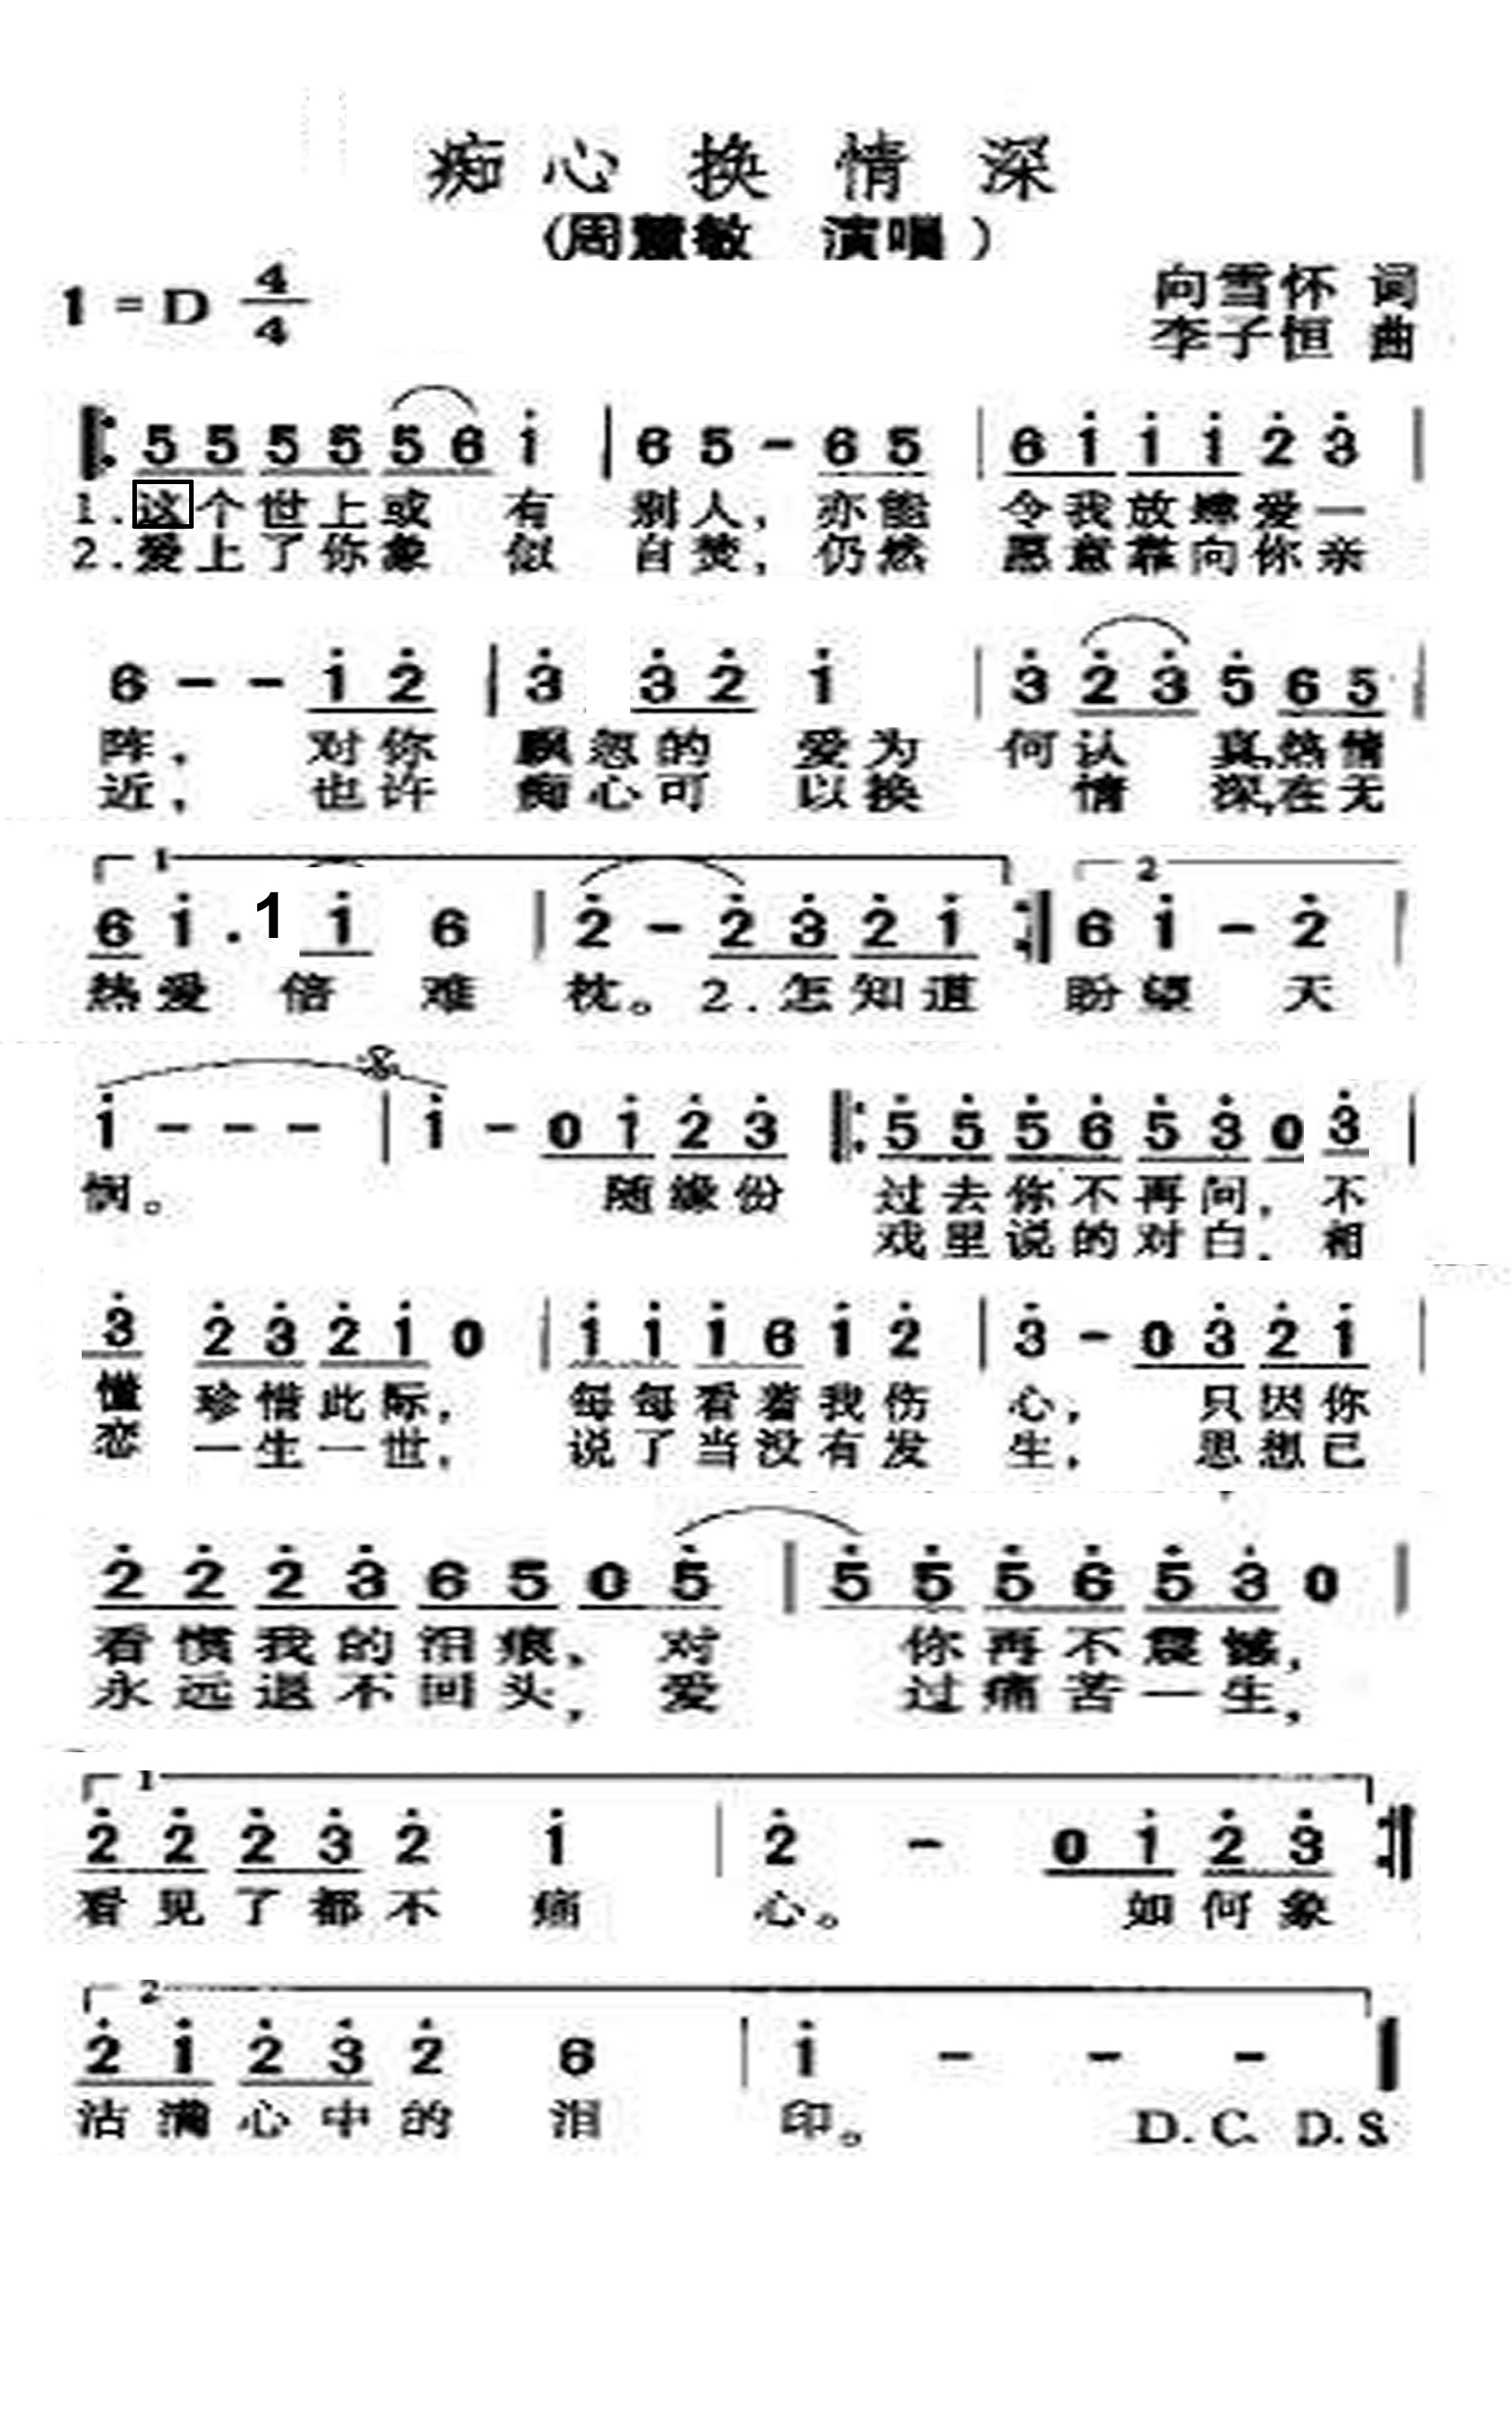 痴心换情深
(周慧敏 演唱)
1=D 4/4
向雪怀 词
李子恒 曲
5 5 5 5 5 6 i | 6 5 - 6 5 | 6 i i i 2 3 |
1.这个世上或 有 别人，亦能 令我放肆爱一
2.爱上了你象 似 自焚，仍然 愿意靠向你亲
6 - - i 2 | 3 3 2 i | 3 2 3 5 6 5 |
阵， 对你 飘忽的 爱为 何认 真,热情
近， 也许 痴心可 以换 情 深,在无
1 2
6 i . 1 i 6 | 2 - 2 3 2 i :| 6 i - 2 |
热爱 倍 难 枕。2.怎知道 盼望 天
i - - - | i - 0 i 2 3 |: 5 5 5 6 5 3 0 3 |
悯。 随缘份 过去你不再问，不
戏里说的对白，相
3 2 3 2 i 0 | i i i 6 i 2 | 3 - 0 3 2 i |
懂 珍惜此际， 每每看着我伤 心， 只因你
恋 一生一世， 说了当没有发 生， 思想已
2 2 2 3 6 5 0 5 | 5 5 5 6 5 3 0 |
看惯我的泪痕，对 你再不震憾，
永远退不回头，爱 过痛苦一生，
1
2 2 2 3 2 i | 2 - 0 i 2 3 :|
看见了都不 痛 心。 如何象
2
2 i 2 3 2 6 | i - - -
沾满心中的 泪 印。 D.C. D.S